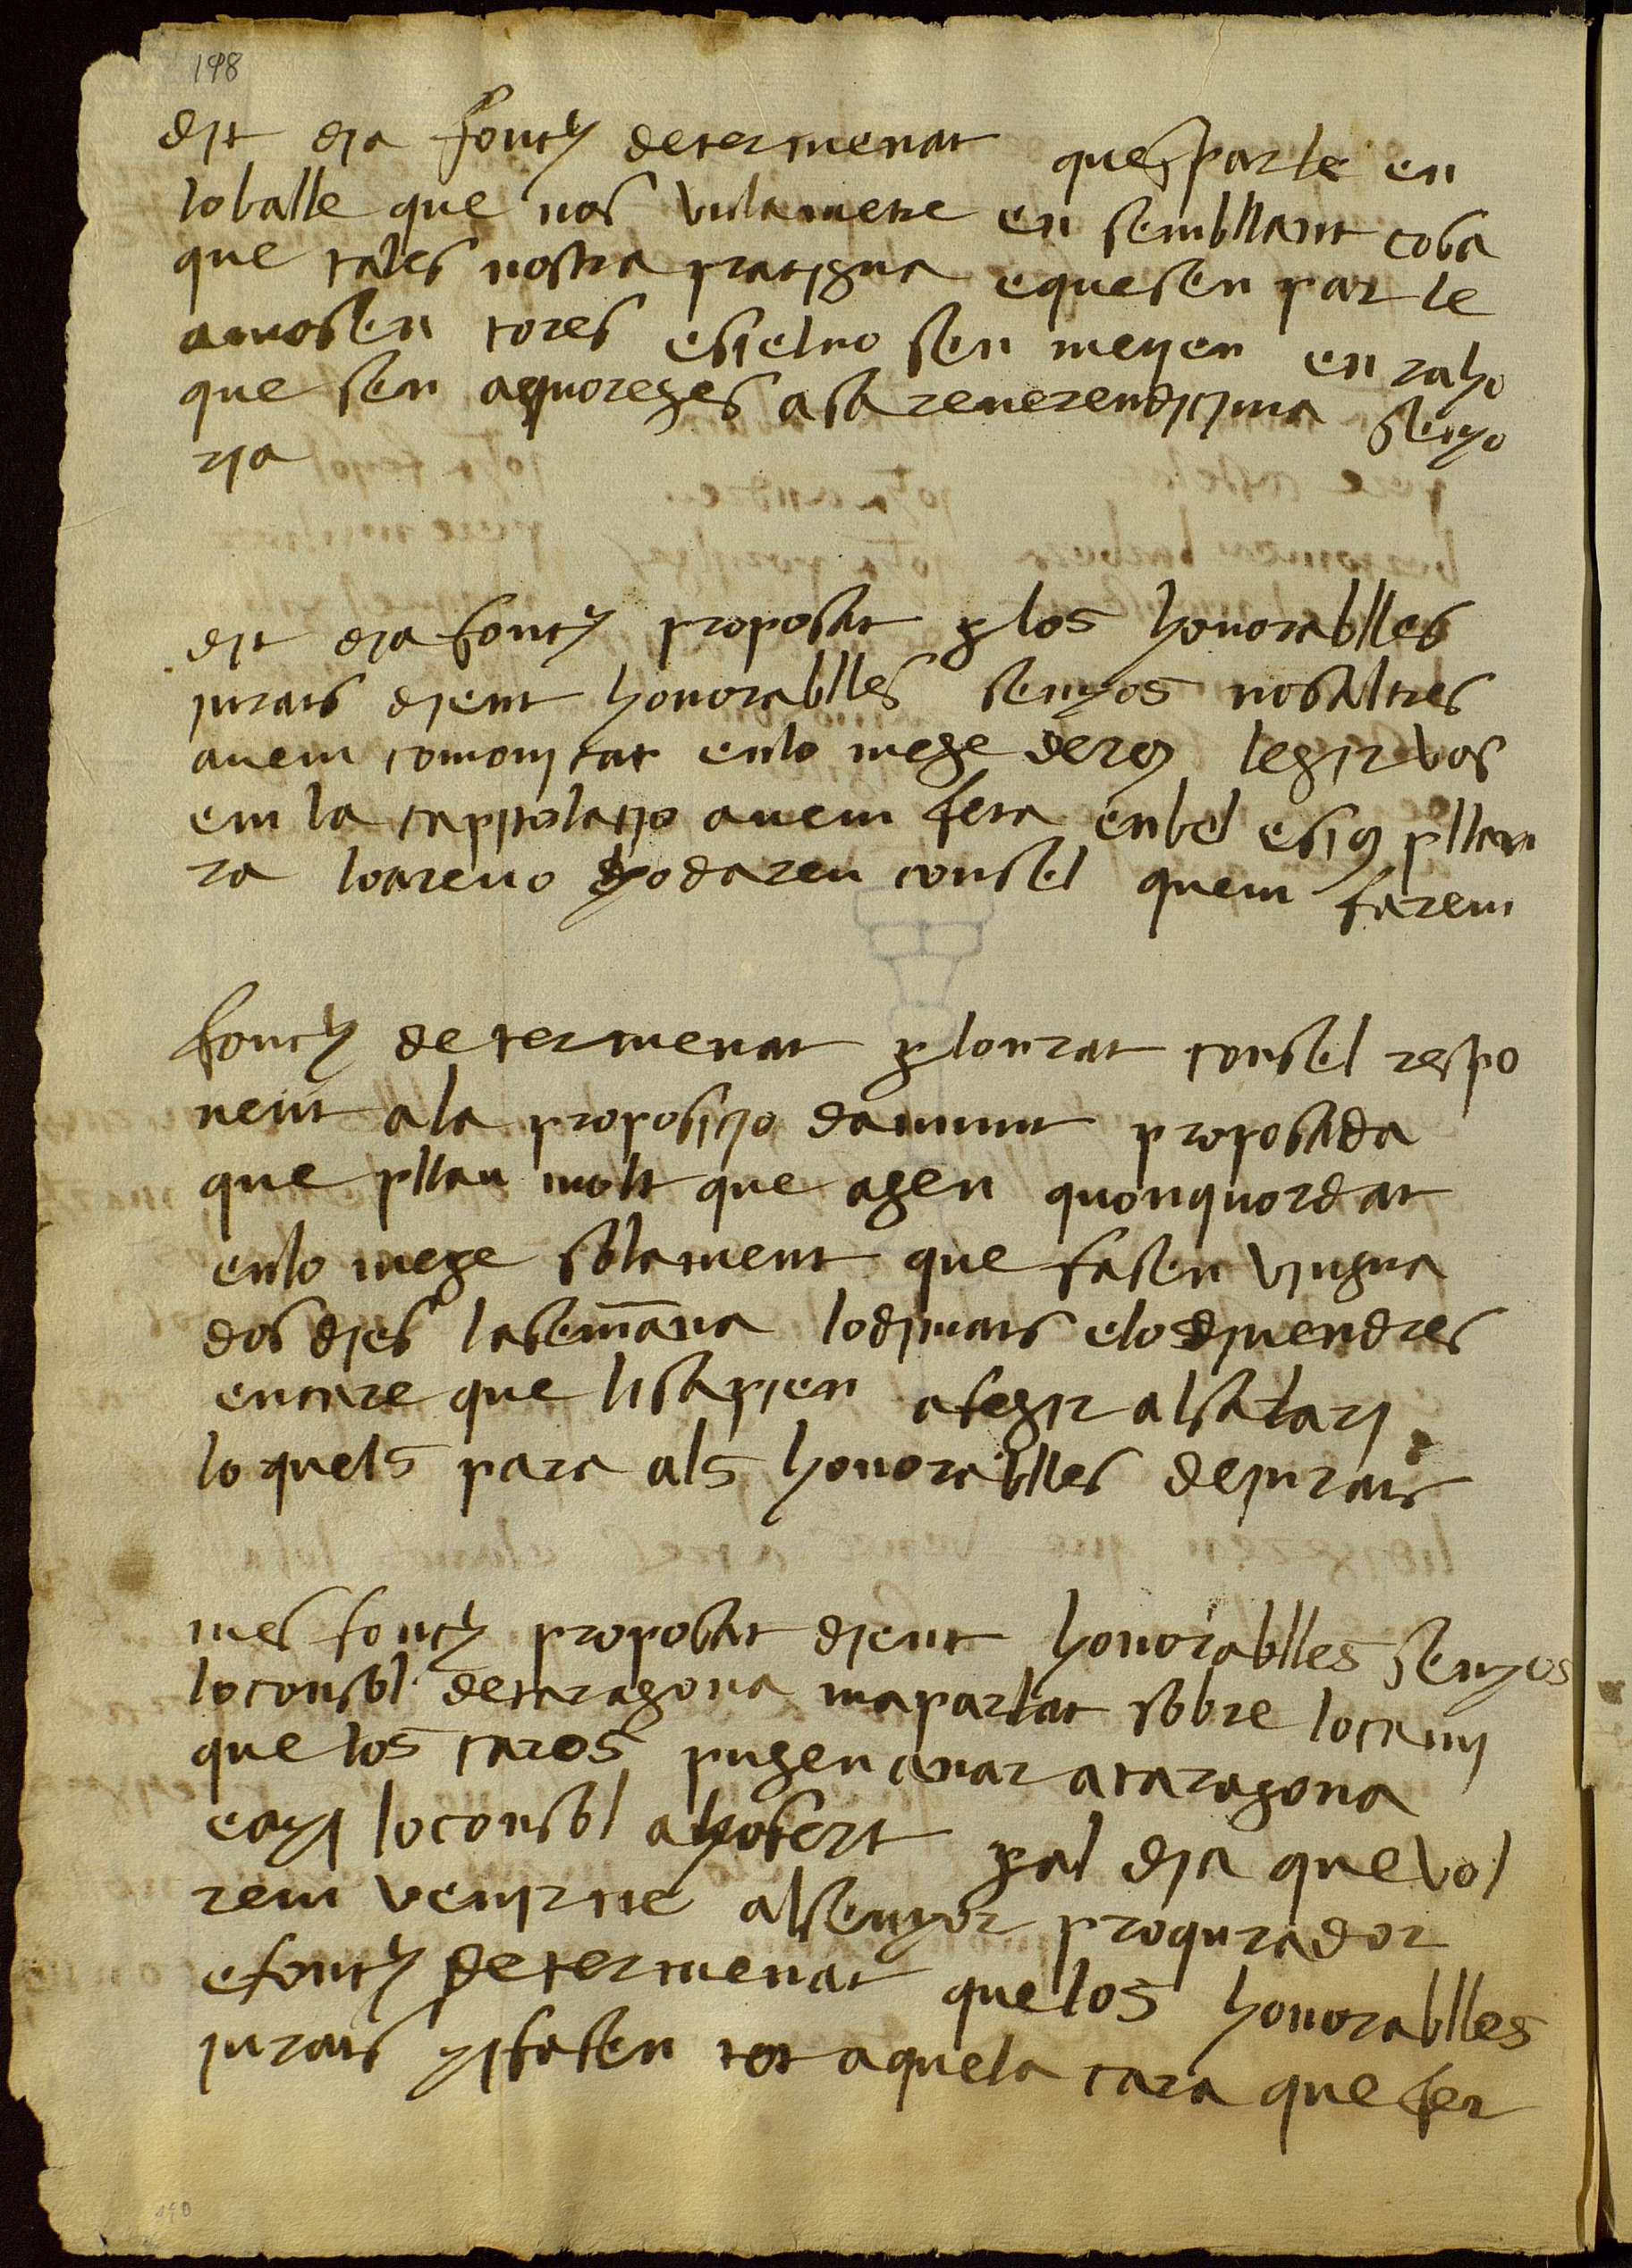 198
dit dia fonch determenat quesparle en
lo balle que nos vula metre en sembllant cosa
que tal es nostra pratigua e que sen parle
a mosen tores e si el no sen meyen en raho
que sen aquoreges a sa reverendicima senyo
ria
dit dia fonch proposat per los honorablles
jurats dient honorablles senyos nosaltres
avem comonicat en lo mege de legir vos
em la capitolacio avem feta en bel e si us pllau
ra loareu o hi o dareu consel quem farem
fonch determenat per lonrat consel respo
nent a la proposicio damunt proposada
que pllau molt que agen quonquordat
en lo mege solament que fasen vingua
dos dies la semana lo dimats e lo divendres
encare que li sapien afegir al salari
lo quels para als honorablles de jurats
mes fonch proposat dient honorablles senyos
lo consol de taragona ma parlat sobre lo cami
que los caros pugen anar a taragona
e axi lo consol a hofert per al dia que vol
rem venir ne al senyor proqurador
e fonch determenat que los honorablles
jurats hi fasen tot aquela cara que fer